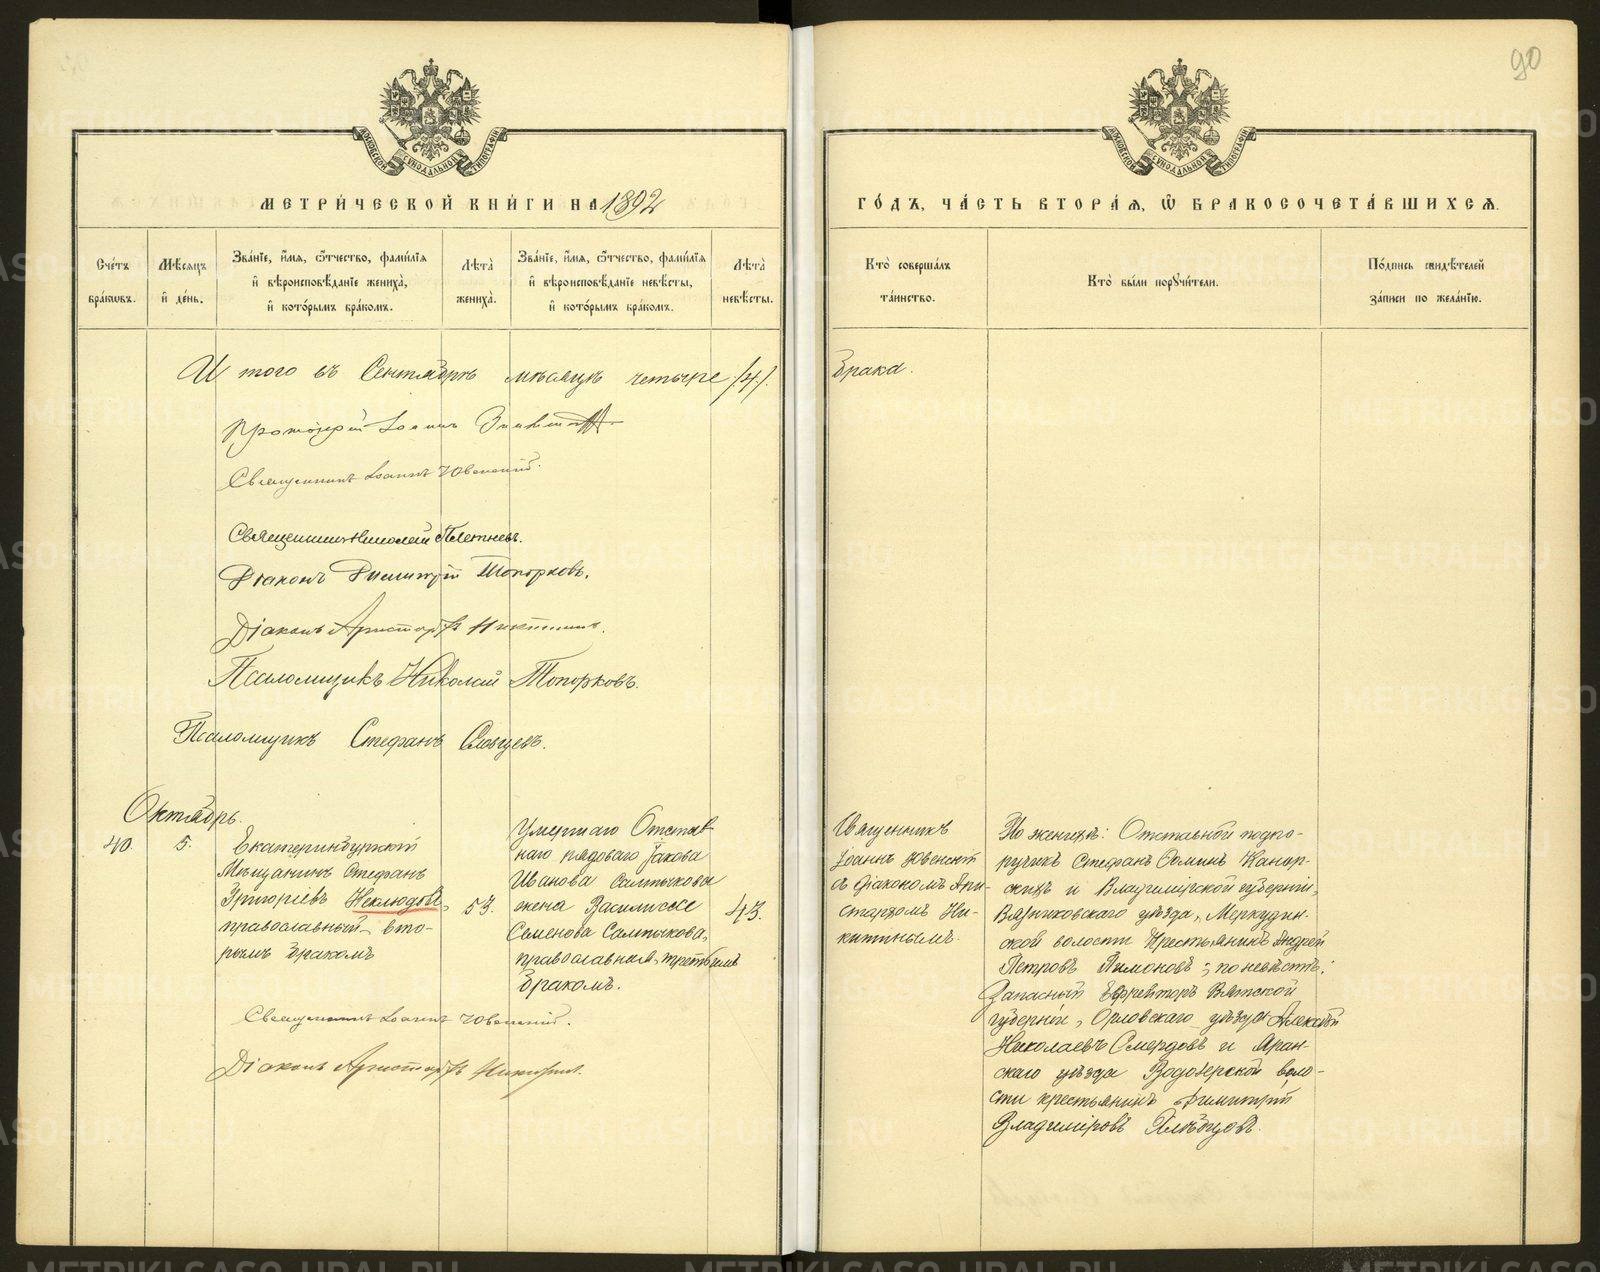 90
МОСКОВСКОЙ СѴНОДАЛЬНОЙ ТИПОГРАФІИ
МОСКОВСКОЙ СѴНОДАЛЬНОЙ ТИПОГРАФІИ
МЕТРИ́ЧЕСКОЙ КНИ́ГИ НА 1892
ГО́ДЪ, ЧА́СТЬ ВТОРА́Ѧ, Ѿ БРАКОСОЧЕТА́ВШИХСѦ.
Сче́тъ бра́кѡвъ.
Мѣ́сѧцъ и҆ де́нь.
Зва́нїе, и҆́мѧ, ѻ҆́тчество, фами́лїѧ и҆ вѣроисповѣ́данїе жениха̀, и҆ кото́рымъ бра́комъ.
Лѣта̀ жениха̀.
Зва́нїе, и҆́мѧ, ѻ҆́тчество, фами́лїѧ и҆ вѣроисповѣ́данїе невѣ́сты, и҆ кото́рымъ бра́комъ.
Лѣта̀ невѣ́сты.
Кто̀ соверша́лъ та́инство.
Кто̀ бы́ли порꙋчи́тели.
По́дпись свидѣ́телей за́писи по жела́нїю.
Итого въ Сентябрѣ мѣсяцѣ четыре /4/.
брака.
Протоіерей Іоаннъ
Священникъ Іоаннъ Ювенскій.
Священникъ Николай Плетневъ.
Діаконъ Димитрій Топорковъ.
Діаконъ Аристархъ Никитинъ.
Псаломщикъ Николай Топорковъ.
Псаломщикъ Стефанъ Словцевъ.
Октябрь.
40.
5.
Екатеринбургскій
Мѣщанинъ Стефанъ
Григоріевъ Неклюдовъ,
православный, вто-
рымъ бракомъ
53.
Умершаго Отстав-
наго рядоваго Іакова
Иванова Салтыкова
жена Василисса
Семенова Салтыкова,
православная, третьимъ
бракомъ.
43.
Священникъ
Іоаннъ Ювенскій
съ діакономъ Ари-
стархомъ Ни-
китинымъ.
По женихѣ: Отставной подпо-
ручикъ Стефанъ Ѳоминъ
и Владимірской губерніи,
Вязниковскаго уѣзда,
волости Крестьянинъ Андрей
Петровъ Пимоновъ; по невѣстѣ:
Запасный Ефрейторъ Вятской
губерніи, Орловскаго уѣзда Алексѣй
Николаевъ Смердовъ и Яран-
скаго уѣзда Водозерской воло-
сти крестьянинъ Димитрій
Владиміровъ
Священникъ Іоаннъ Ювенскій.
Діаконъ Аристархъ Никитинъ.
METRIKI.GASO-URAL.RU